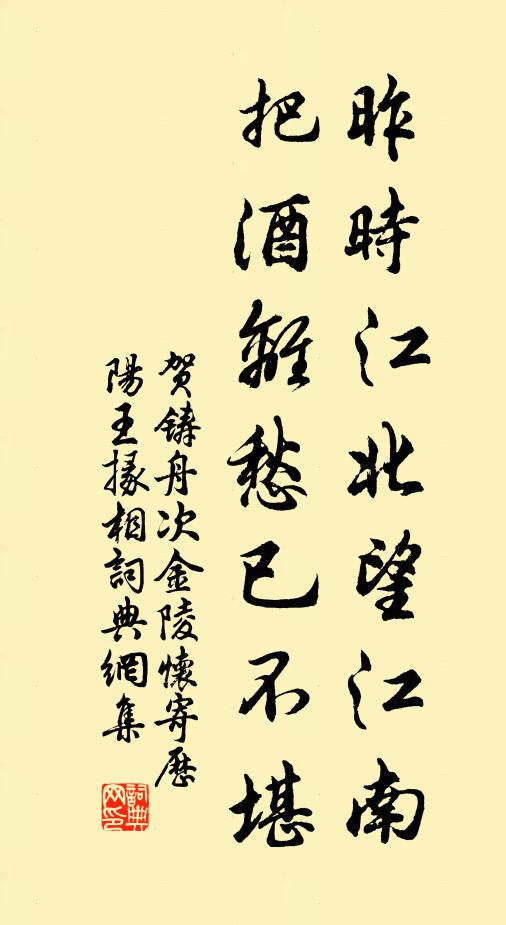 昨時江北望江南
把酒離愁已不堪
賀鑄舟次金陵懷寄歷
陽王掾相詞典網集
詞典
网印